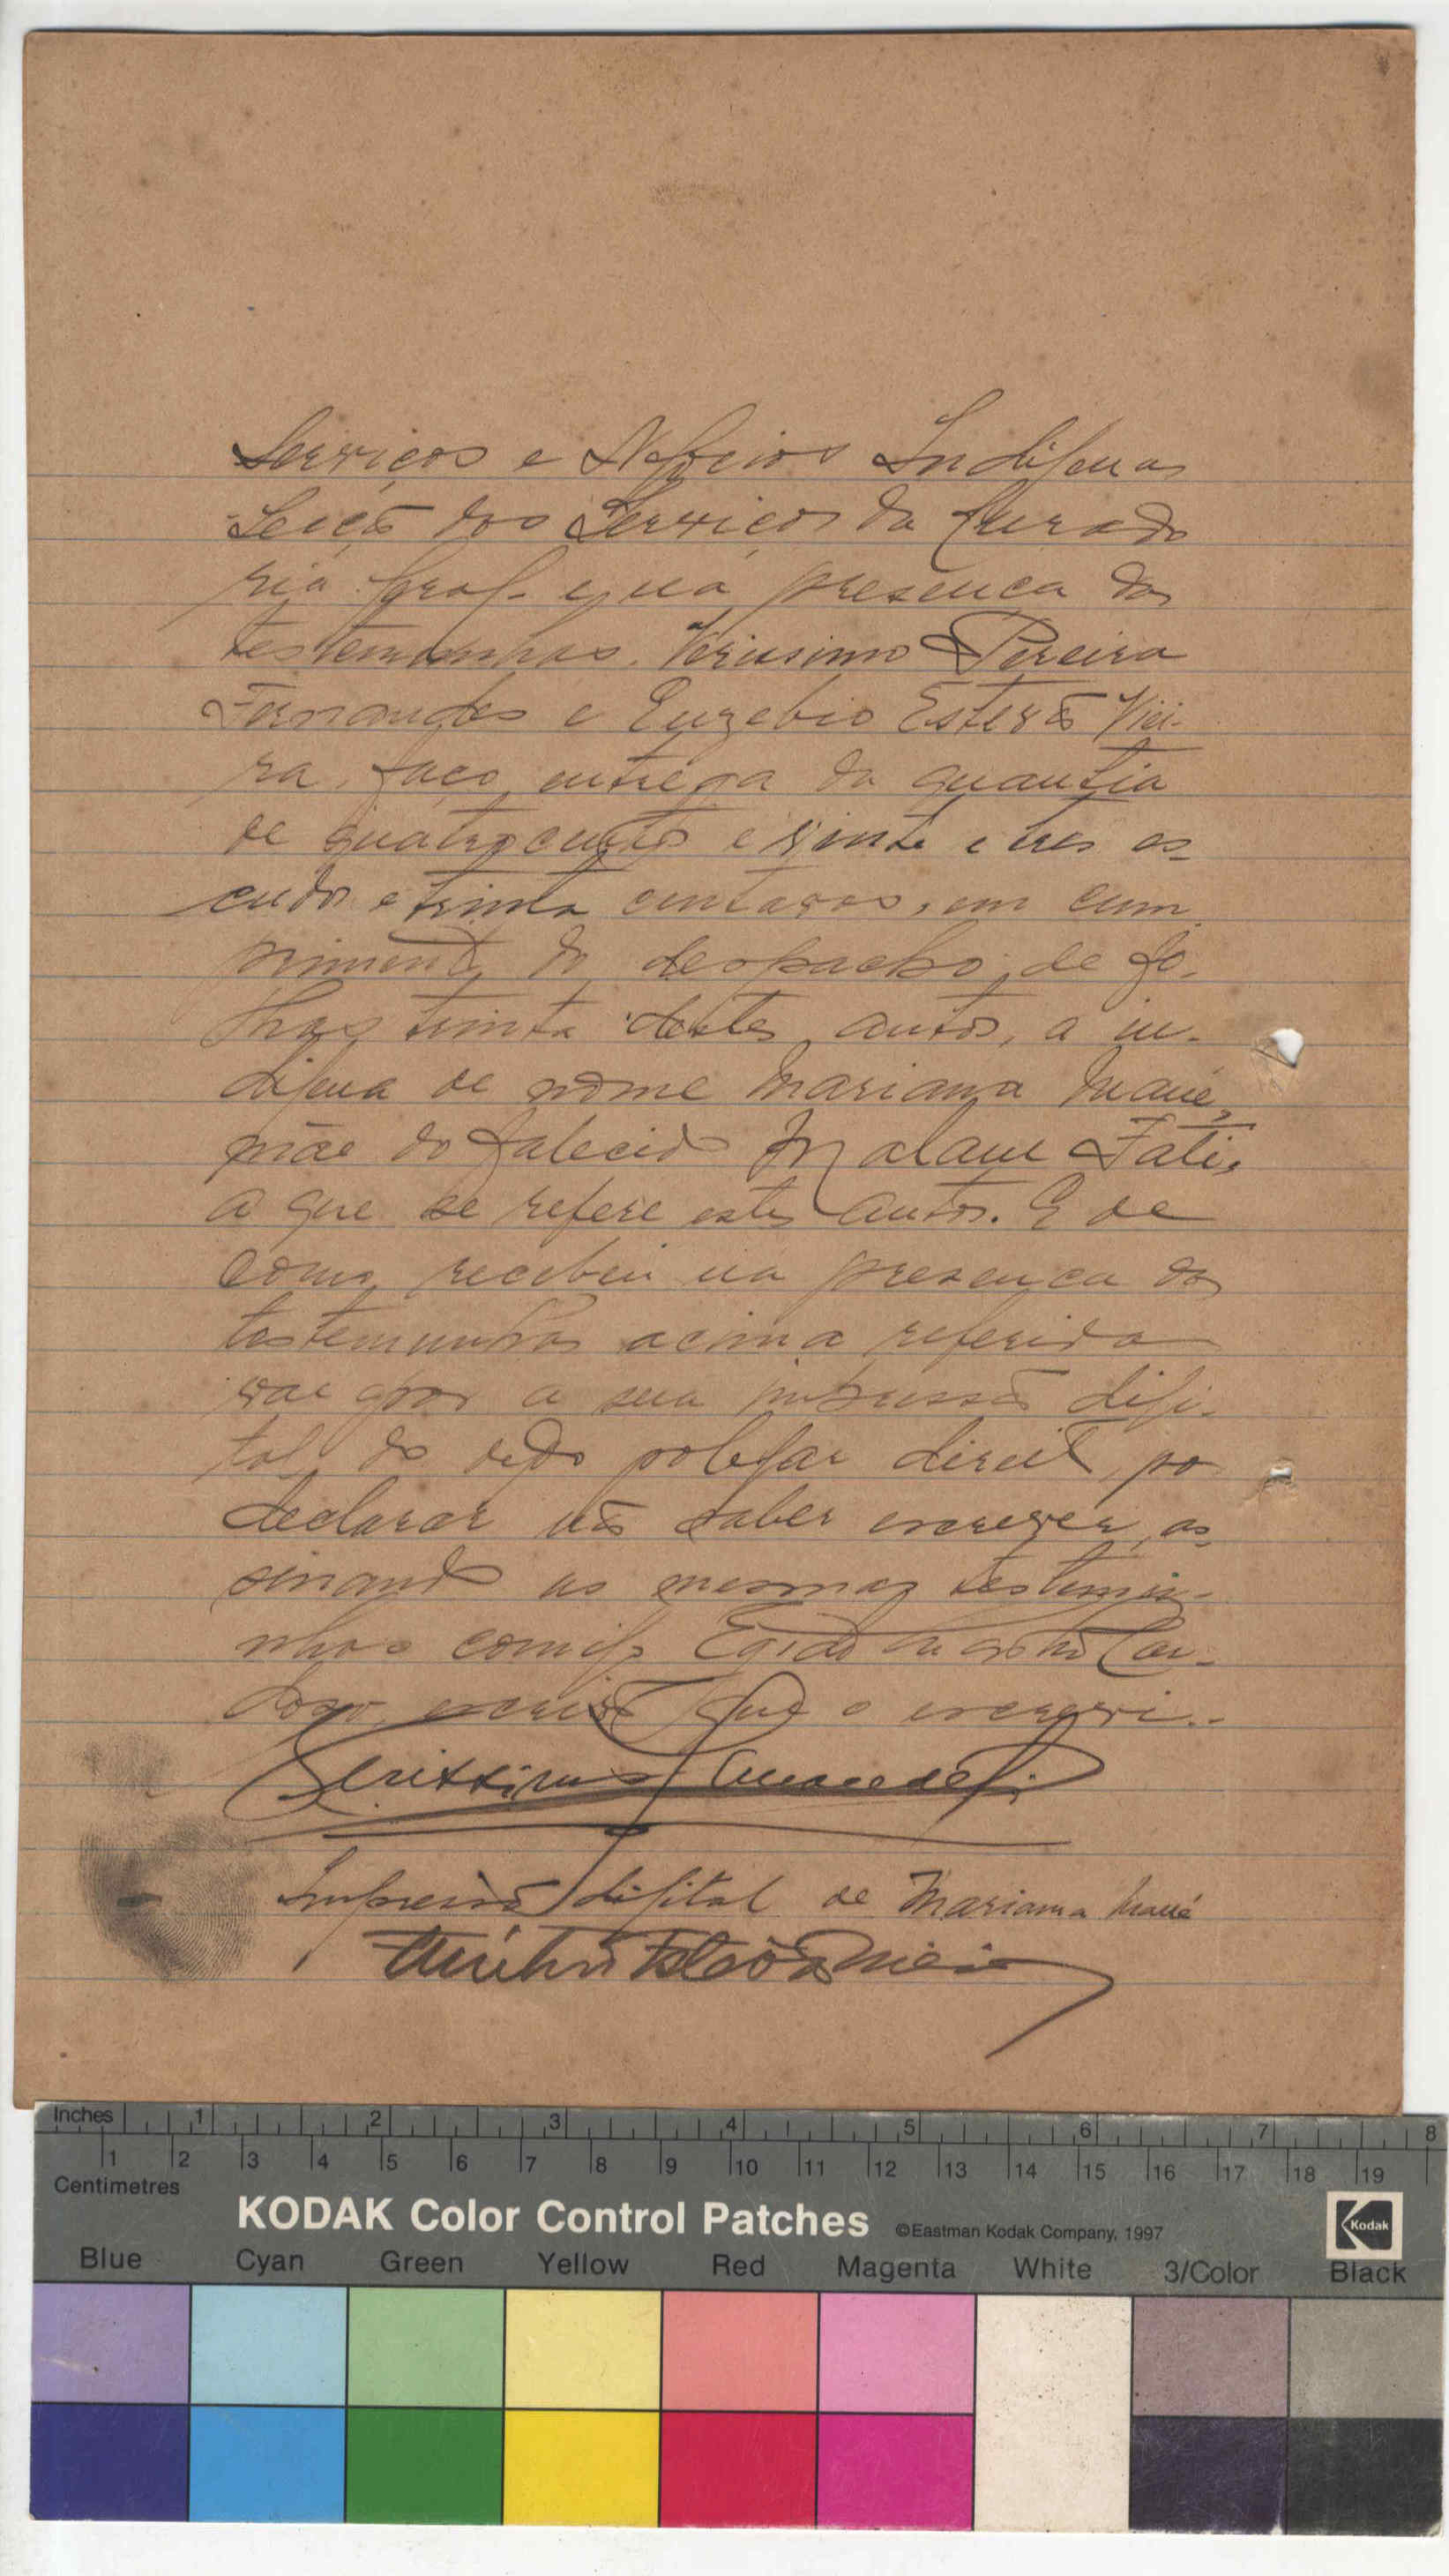 Serviços e Negocios Indigenas
Secção dos Serviços da Curado
ria Geral e na presença das
testemunhas. Verissimo Pereira
Fernandes e Euzebio Estevão Viei-
ra, faço entrega da quantia
de quatrocentos e vinte e tres es-
cudos e trinta centavos, em cum
primento do despacho de fo-
lhas trinta destes autos, a in-
digena de nome Mariama Mané,
mãe do falecido Malam Fati,
a que se refere estes autos. E de
como recebeu na presença das
testemunhas acima referidas
vae por a sua impressão digi-
tal do dedo polegar direito, po
declarar não saber escrever, as-
sinando as mesmas testemu-
nhas comigo Car-
doso, escrivão que o escrevi..
Verissimo Fernandes
Impressão digital de Mariama Mané
Inches 1 2 3 4 5 6 7 8
1 2 3 4 5 6 7 8 9 10 11 12 13 14 15 16 17 18 19
Centimetres
KODAK Color Control Patches ©Eastman Kodak Company, 1997 Kodak
Blue Cyan Green Yellow Red Magenta White 3/Color Black